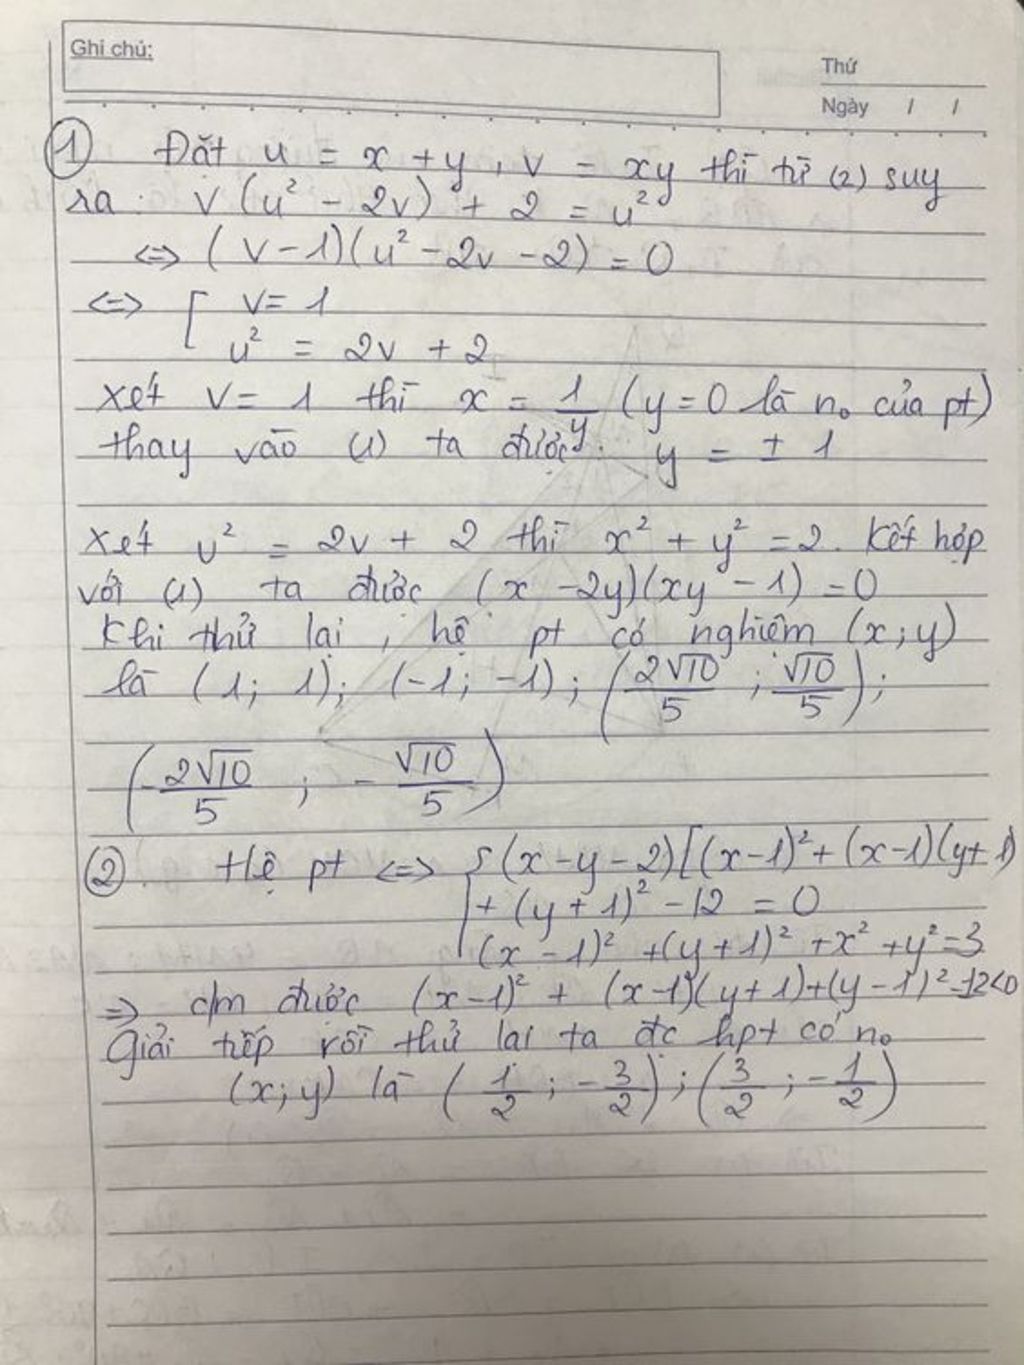 Ghi chú:
Thứ
Ngày / /
① Đặt u = x + y, v = xy thì từ (2) suy
ra: v(u² - 2v) + 2 = u²
<=> (v - 1)(u² - 2v - 2) = 0
<=> [ v = 1
u² = 2v + 2
xét v = 1 thì x = 1/y (y = 0 là n₀ của pt)
thay vào (1) ta được: y = ± 1
xét u² = 2v + 2 thì x² + y² = 2. Kết hợp
với (1) ta được (x - 2y)(xy - 1) = 0
Khi thử lại, hệ pt có nghiệm (x; y)
là (1; 1); (-1; -1); (2√10/5 ; √10/5);
(-2√10/5 ; -√10/5)
②. Hệ pt <=> { (x - y - 2)[(x-1)² + (x-1)(y+1)
+ (y + 1)² - 12 = 0
(x - 1)² + (y + 1)² + x² + y² = 3
=> c/m được (x-1)² + (x-1)(y+1) + (y-1)² - 12 < 0
Giải tiếp rồi thử lại ta đc hpt có n₀
(x; y) là (1/2 ; -3/2); (3/2 ; -1/2)